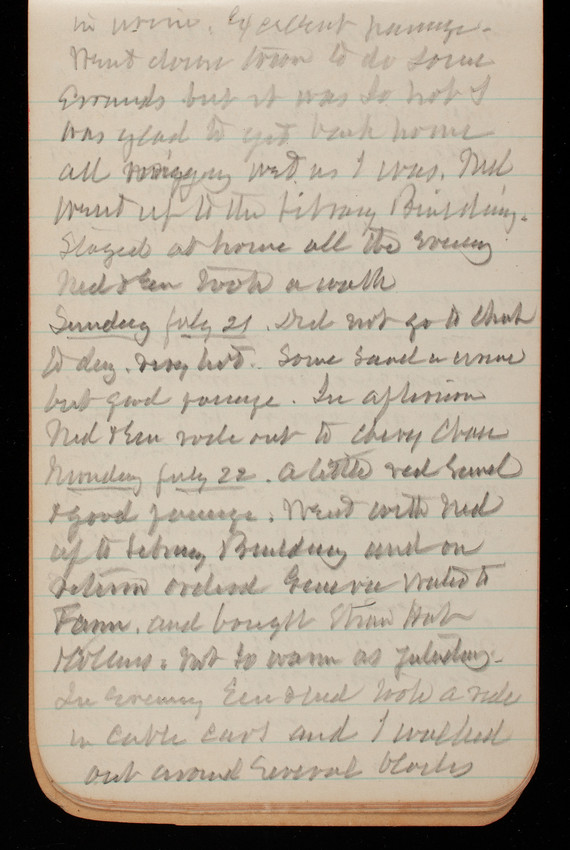 in urine. Excellent passage.
Went down town to do some
Errands but it was so hot I
was glad to get back home
all wringing wet as I was. Ned
went up to the Library Building.
Stayed at home all the Evening
Ned & Em took a walk
Sunday July 21. Did not go to Chch
to day. very hot. Some Sand in urine
but good passage. In afternoon
Ned & Em rode out to Chevy Chase
Monday July 22. A little red Sand
& good passage. Went with Ned
up to Library Building and on
return ordered Geneva Water to
Farm. and bought Straw Hat
& Collars. Not so warm as yesterday.
In Evening Em & Ned took a ride
in Cable Cars and I walked
out around Several blocks